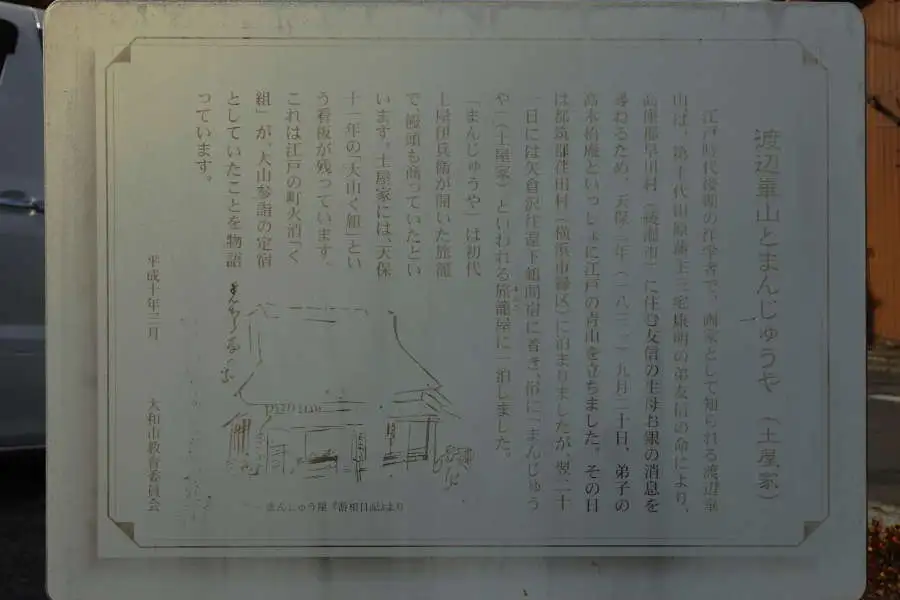 渡辺崋山とまんじゅうや（土屋家）
江戸時代後期の洋学者で、画家として知られる渡辺崋
山は、第十代田原藩主三宅康明の弟友信の命により、
高座郡早川村（綾瀬市）に住む友信の生母お銀の消息を
尋ねるため、天保二年（一八三一）九月二十日、弟子の
高木梧庵といっしょに江戸の青山を立ちました。その日
は都筑郡荏田村（横浜市緑区）に泊まりましたが、翌二十
一日には矢倉沢往還下鶴間宿に着き、俗に「まんじゅう
や」（土屋家）といわれる旅籠屋に一泊しました。
「まんじゅうや」は初代
土屋伊兵衛が開いた旅籠
で、饅頭も商っていたとい
います。土屋家には、天保
十一年の「大山く組」とい
う看板が残っています。
これは江戸の町火消「く
組」が、大山参詣の定宿
としていたことを物語
っています。
まんじゅう屋『游相日記』より
平成十年三月
大和市教育委員会